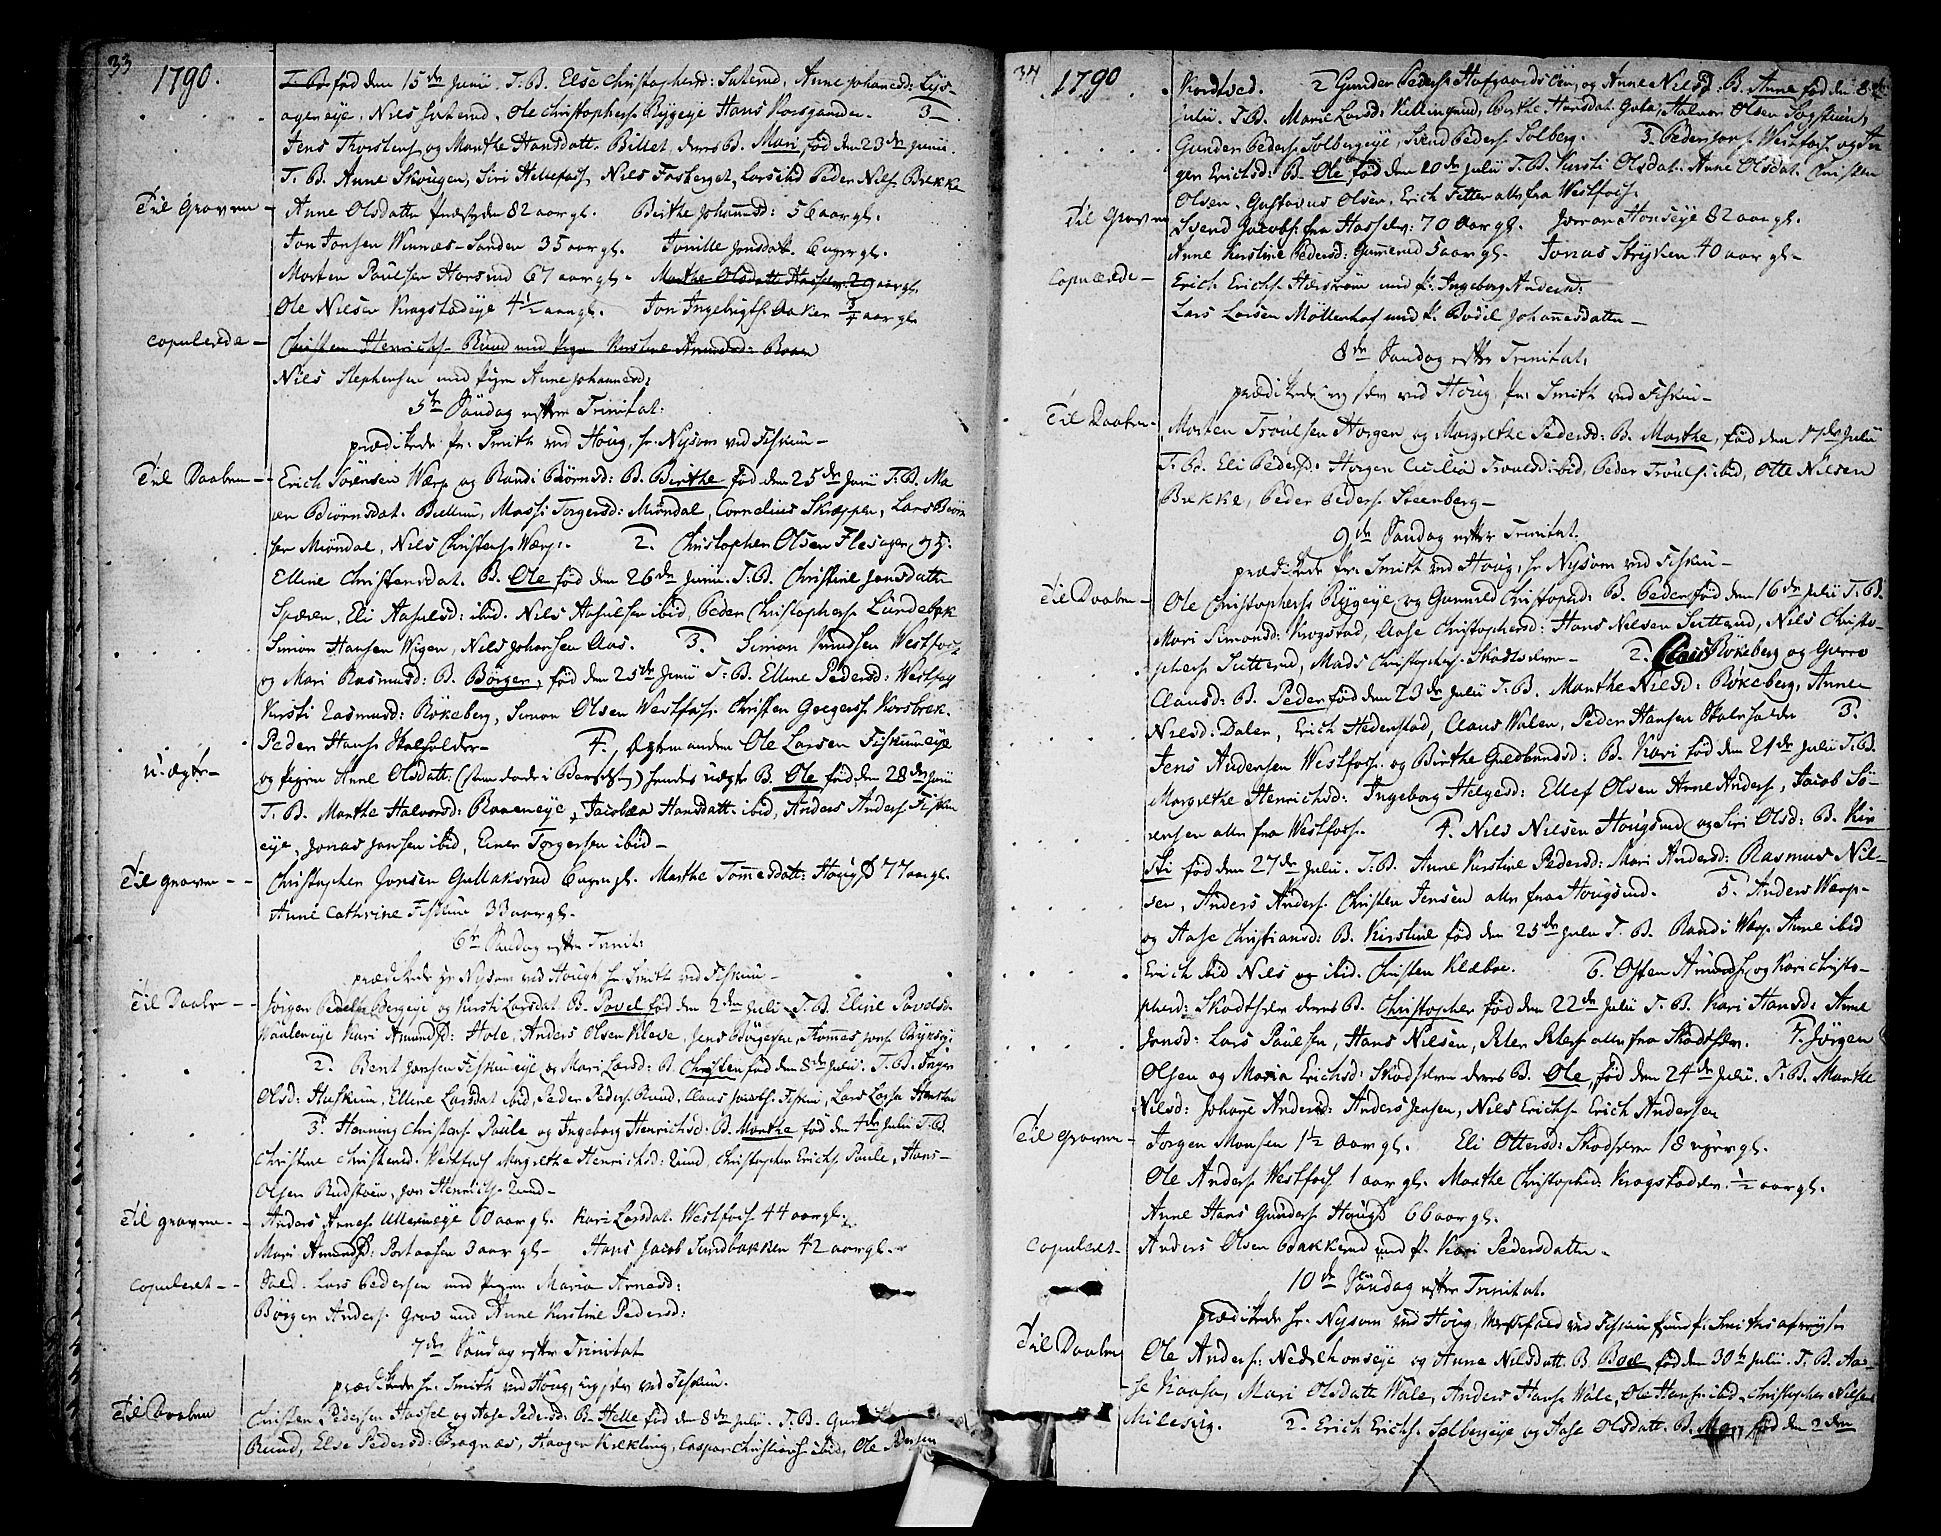 33
1790.
T. B. fød den 15de Junii. T. B. Else Christophersd: Suterud, Anne Johannesd: Lys-
agerøye, Nils Suterud, Ole Christophers. Byggeye Hans Korsgaarden. 3
Jens Thorstens. og Marthe Hansdatt. Billet, deres B. Mari, fød den 23de Junii.
T. B. Anne Skougen, Siri Hellefoss, Nils Fosberget, Lars ibid Peder Nils. Bække
Til Graven - Anne Olsdatter 82 aar gl. Berthe Johannesd: 56 aar gl.
Jon Jonsen Winnæs-Sanden 35 aar gl. Tonille Jonsdatt. 6 uger gl.
Morten Paulsen Horsrud 67 aar gl. Marthe Olsdatt Hassel 29 aar gl.
Ole Nilsen Krogstadeye 4 1/2 aar gl. Jon Ingebrigts. Aaker 3/4 aar gl.
copulerede - Christen Henrichs. Ruud med Pigen Kirstine Amundsd: Boen
Nils Stephensen med Pigen Anne Johannesd:
5te Søndag efter Trinitat:
prædikede hr. Smith ved Houg, hr. Nysom ved Fiskum -
Til Daaben - Erich Sørensen Værp og Randi Biörnsd: B. Birthe fød den 25de Junii T. B. Ma
ren Biörnsdat. Bellum, Mass: Torgersd: Miöndal, Cornelius Skræppen, Lars Biörn
sen Miöndal, Nils Christens. Værp. 2. Christopher Olsen Flesager, og
Elline Christensdat. B. Ole fød den 26de Junii. T. B. Christine Jonsdatter
Spæren, Eli Aslesd: ibid. Nils Asulsen ibid, Peder Christophers. Lundebak
Simon Hansen Wigen, Nils Johansen Aas. 3. Simon Knudsen Westfoss
og Mari Rasmusd: B. Börger, fød den 25de Junii T. B. Elline Pedersd: Westfoss
Kirsti Rasmusd: Rökeberg, Simon Olsen Westfoss. Christen Gregers. Korsbrek.
Peder Hans. Skalholder - 4., Ægtemanden Ole Larsen Fiskumeye
u-ægte - og Pigen Anne Olsdatt: hendes uægte B. Ole fød den 28de Junii
T. B. Marthe Halvorsd: Rameneye, Jacobæa Hansdatt. ibid, Anders Anders. Fiskum
eye, Jonas Jonsen ibid, Einer Torgersen ibid -
Til graven - - Christopher Jonsen Gullaksrud 6 uger gl. Marthe Tommesdatt: Hougsd 77 aar gl.
Anne Cathrine Fiskum 33 aar gl.
6te Søndag efter Trinit:
prædikede hr Nysom ved Hough hr Smith ved Fiskum -
Til Daaben - - Jörgen Bergeye og Kirsti Larsdat B. Povel fød den 2den Julii. T. B. Eline Povelsd.
Kari Amundsd: Hole, Anders Olsen Kleve, Jens Börgersen, Tommes Jons.
2. Bent Jonsen Fiskumeye og Mari Larsd: B. Christen fød den 8de Julii. T. B. Inger
Olsd: Fiskum, Elline Larsdat ibid, Peder Peders. Ruud, Claus Jacobs. Fiskum, Lars Hanstad
3. Henning Christens. Paule og Ingeborg Henrichsd: B. Marthe fød den 4de Julii T. B.
Christine Christensd. Westfoss Magrethe Henrichsd: Ruud, Christopher Erichs. Paule, Hans -
Olsen Rudstöen, Jon Henrichs. Ruud -
Til graven - - Anders Arnes. Ullerneeye 60 aar gl. Kari Larsdat. Westfoss 44 aar gl.
Mari Amundsd: Portaasen 3 aar gl. - Hans Jacob Sundbakken 42 aar gl.
copuleret - - Sold. Lars Pedersen med Pigen Maria Arnesd:
Börger Anders. Grov med Anne Kirstine Pedersd:
7de Søndag efter Trinitat
prædikede hr. Smith ved Houg, ved Fiskum.
Til Daaben Christen Pedersen Hassel og Aase Pedersd: B. Helle fød den 8de Julii. T. B.
Ruud, Else Pedersd: Bragnæs, Haagen Krekling, Caspar Christians. ibid, Ole Pedersen
34
1790
Kordtved. 2 Gunder Peders. Hofgaards Eie, og Anne Nilsd: B. Anne fød den 8de
Julii. T. B. Marie Larsd: Killingrud, Berthe Hansdat. Gola, Halvor Olsen Sogstuen,
Gunder Peders. Solbergeye, Svend Peders. Solberg. 3. Peder Westfoss. og In
ger Erichsd: B. Ole fød den 20de Julii T. B. Kirsti Olsdat. Anne Olsdat. Christen
Olsen, Gustavus Olsen, Erich Fetter alle fra Westfoss.
Til Graven Svend Jacobs. fra Hasselv: 70 aar gl. Joran Honseye 82 aar gl.
Anne Kirstine Pedersd: Gunnerud 5 aar gl. Jonas Stryken 40 aar gl -
Copulerede - Erich Erichs. Hærstrøm med P. Ingeborg Andersd:
Lars Larsen Möllenhof med P. Bodil Johannesdatter -
8de Søndag efter Trinitat.
prædikede ved Houg, hr. Smith ved Fiskum -
Til Daaben - Morten Troulsen Horgen og Margrethe Pedersd: B. Marthe, fød den 17de Julii
T. B. Eli Pedersd: Horgen Cicilia Troulsd: ibid, Peder Trouls. ibid, Otte Nilsen
Bække, Peder Peders. Steenberg -
9de Søndag efter Trinitat.
prædikede hr. Smith ved Houg, hr Nysom ved Fiskum -
Til Daaben - Ole Christophers. Rygeye og Gunnild Christophd: B. Peder fød den 16de Julii T. B.
Mari Simonsd: Krogstad, Aase Christophersd: Hans Nilsen Sutterud, Nils Christo-
phers. Sutterud, Mads Christophers. Skodtselven - 2. Claus Rökeberg og Guroe
Clausd: B. Peder fød den 23de Julii T. B. Marthe Nilsd: Rökeberg, Anne
Nilsd: Dalen, Erich Hedenstad, Claus Walen, Peder Hansen Skaleholder 3.
Jens Andersen Westfoss. og Birthe Guldbrandsd: B. Kari fød den 21de Julii T. B.
Margrethe Henrichsd: Ingeborg Helgesd: Ellef Olsen Arne Anders. Jacob Sö-
rensen alle fra Westfoss. 4. Nils Nilsen Hougsrud og Siri Olsd: B. Kir
sti fød den 27de Julii. T. B. Anne Kirstine Pedersd: Mari Andersd: Rasmus Nil-
sen, Anders Anders. Christen Jensen alle fra Hougsrud. 5. Anders Warp-
og Aase Christiansd: B. Kirstine fød den 25de Julii T. B. Randi Warp Anne ibid
Erich ibid Nils og ibid. Christen Klæboe. 6. Osten Amunds. og Kari Christo-
phersd: Skodtselv deres B. Christopher fød den 22de Julii T. B. Kari Hansd: Anne
Jonsd: Lars Paulsen, Hans Nilsen, Peter Peters. alle fra Skodtselv. 7. Jörgen
Olsen og Maria Erichsd: Skodselven deres B. Ole, fød den 24de Julii. T. B. Marthe
Nilsd: Johanne Andersd: Anders Jensen, Nils Erichs. Erich Andersen
Til Graven - Jorgen Monsen 1 1/2 aar gl. Eli Ottersd: Skodselven 18 uger gl.
Ole Anders. Westfoss 1 aar gl. Marthe Christophersd. Krogstadelv. 1/2 aar gl.
Anne Hans Gunders. Hougsd 66 aar gl.
Copuleret - Anders Olsen Bakkerud med P. Kari Pedersdatter -
10de Søndag efter Trinitat.
prædikede hr. Nysom ved Houg, Messefald ved Fiskum formedelst hr. Smiths afreise
Til Daaben Ole Anders. Nedrehonseye og Anne Nilsdatt. B. Boel fød den 30te Julii. T. B. Aa-
se Kaasa, Mari Olsdatt Wale, Anders Hans. Wale, Ole Hans. ibid. Christopher Nilsen
Milesvig. 2. Erich Erichs. Solbergeye og Aase Olsdatt. B. Mari fød den 2den